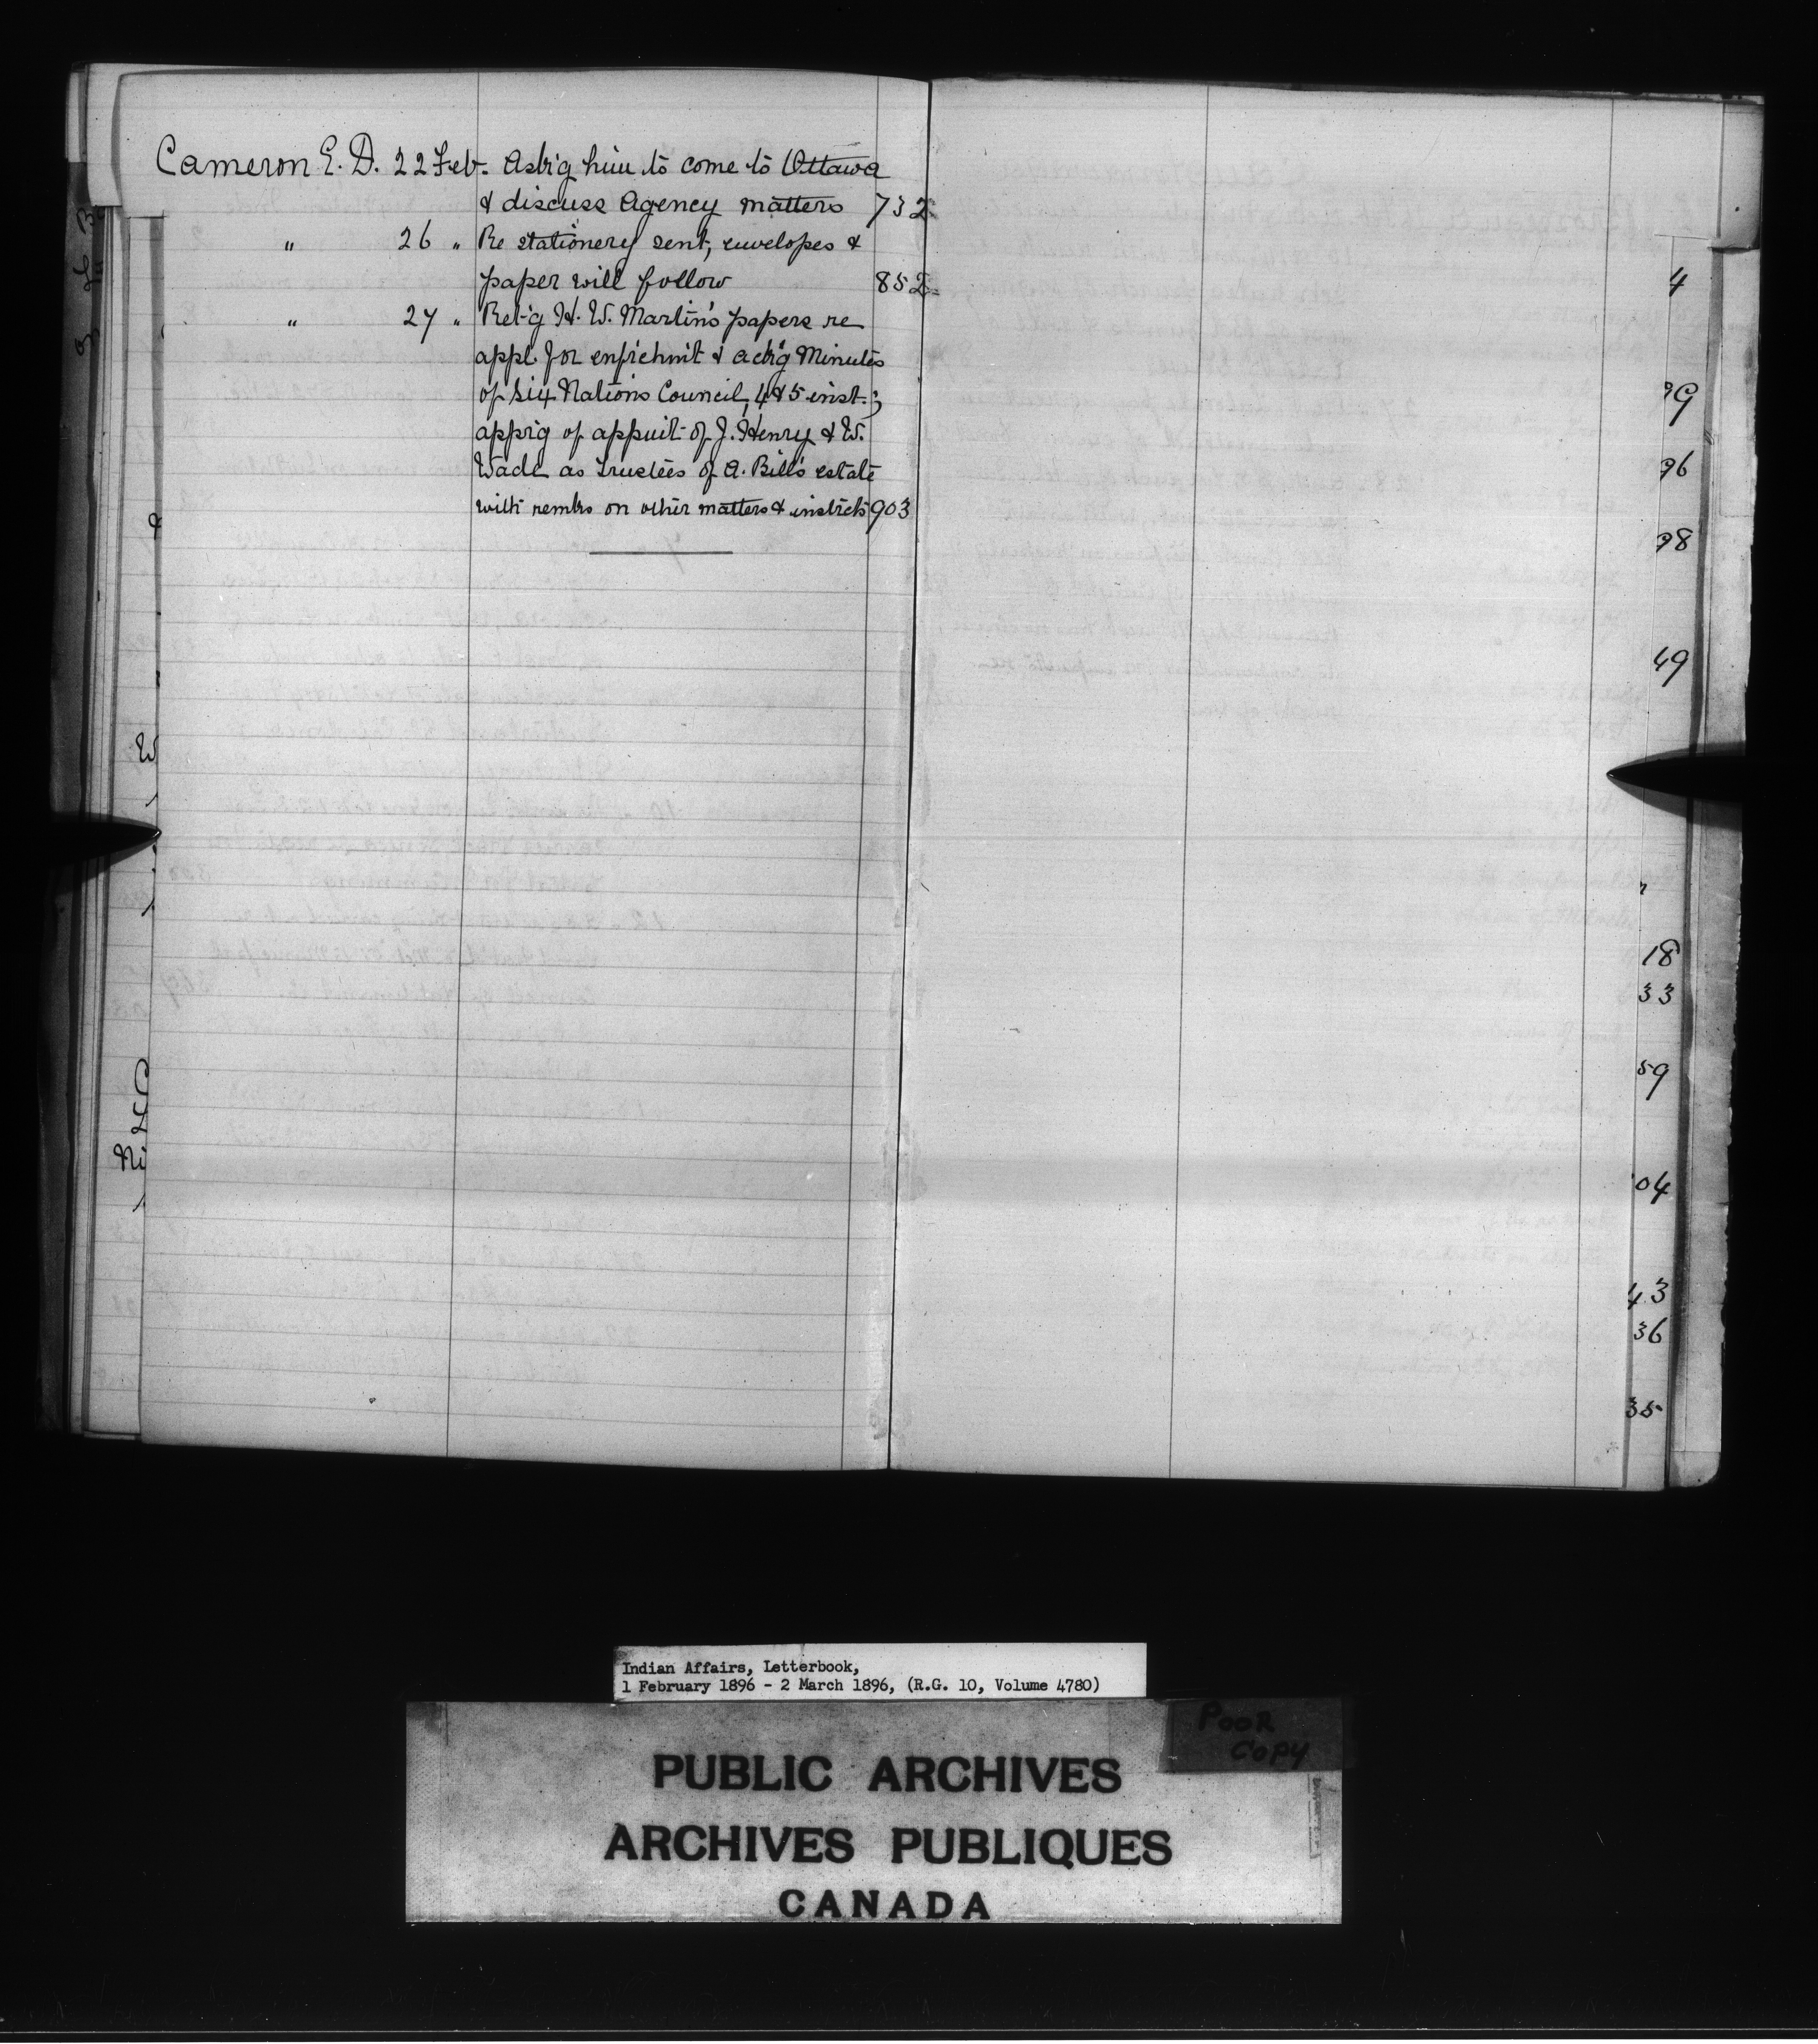 Cameron E. D. 22 Feb. Ask'g him to come to Ottawa
& discuss Agency matters 732
" 26 " Re stationery sent, envelopes &
paper will follow 852
" 27 " Ret'g H. W. Martin's papers re
appl. for enf'chm't & ack'g Minutes
of Six Nations Council, 4 & 5 inst.;
app'g of appm't of J. Henry & W.
Wade as trustees of A. Bill's estate
with remks on other matters & instr'cts 903
W
Ni
4
99
96
98
49
18
33
59
04
43
36
35
Indian Affairs, Letterbook,
1 February 1896 - 2 March 1896, (R.G. 10, Volume 4780)
POOR
COPY
PUBLIC ARCHIVES
ARCHIVES PUBLIQUES
CANADA